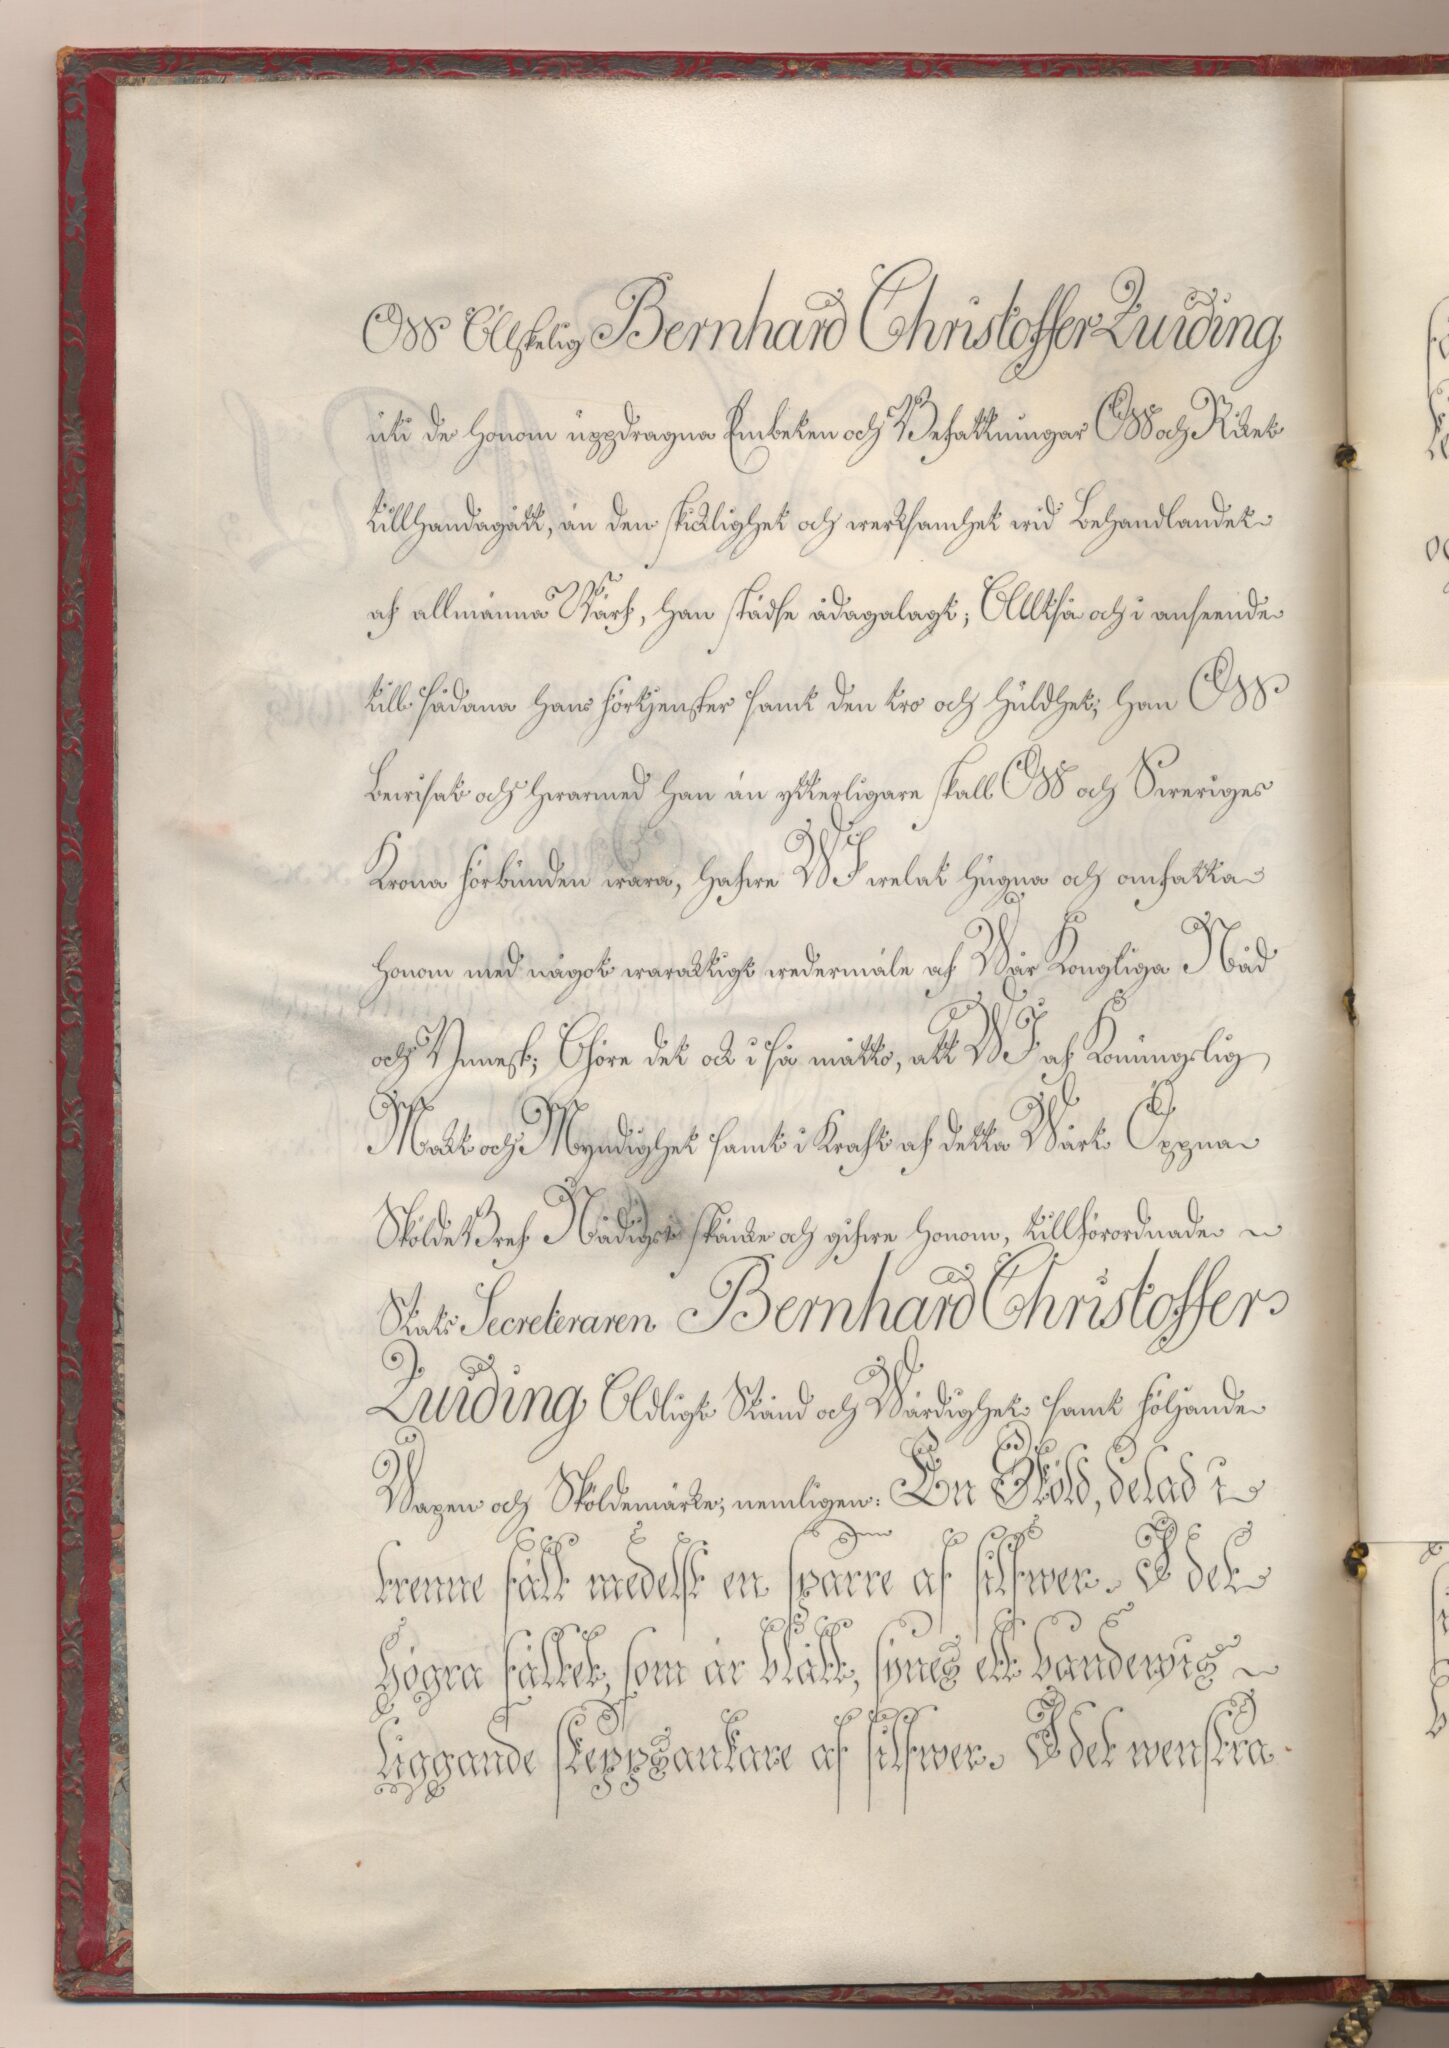 Oss Ellskelig Bernhard Christoffer Zuiding
uti de honom uppdragna Embeten och Befattningar Oss och Riket
tillhandagått, än den skicklighet och werksamhet wid Behandlandet
af allmänna Wärf, han städse ådagalagt; Alltså och i anseende
till sådana hans förtjenster samt den tro och huldhet, han Oss
bewisat och hwarmed han än ytterligare skall Oss och Sweriges
Krona förbunden wara, hafwe WI welat hugna och omfatta
honom med något waracktigt wedermäle af Wår Kongliga Nåd
och Ynnest; Göre det ock i så måtto, att WI af Konungslig
Mackt och Myndighet samt i kraft af detta Wårt Öppna
Sköldebref Nådigst skänke och gifwe honom, tillförordnade
Stats Secreteraren Bernhard Christoffer
Zuiding Adligt Stånd och Wärdighet samt följande
Wapen och Sköldemärke, nemligen: En Sköld, delad i
trenne fält medelst en sparre af silfwer. I det
högra fältet, som är blått, synes ett bandewis
liggande skeppsankare af silfwer. I det wenstra